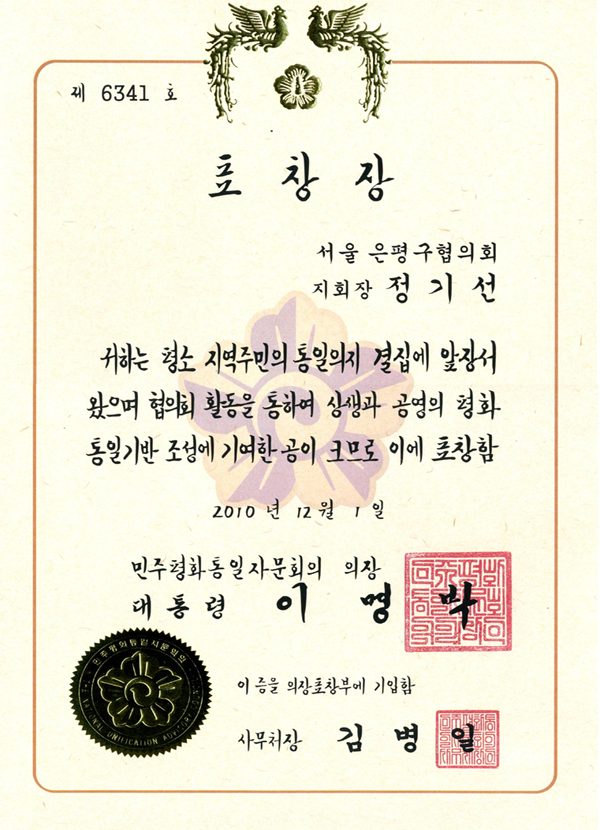 제 6341 호
표 창 장
서울 은평구협의회
지회장 정 기 선
귀하는 평소 지역주민의 통일의지 결집에 앞장서
왔으며 협의회 활동을 통하여 상생과 공영의 평화
통일기반 조성에 기여한 공이 크므로 이에 표창함
2010 년 12 월 1 일
민주평화통일자문회의 의장
대 통 령 이 명 박
민주평화통일자문회의
NATIONAL UNIFICATION ADVISORY
이 증을 의장표창부에 기입함
사무처장 김 병 일